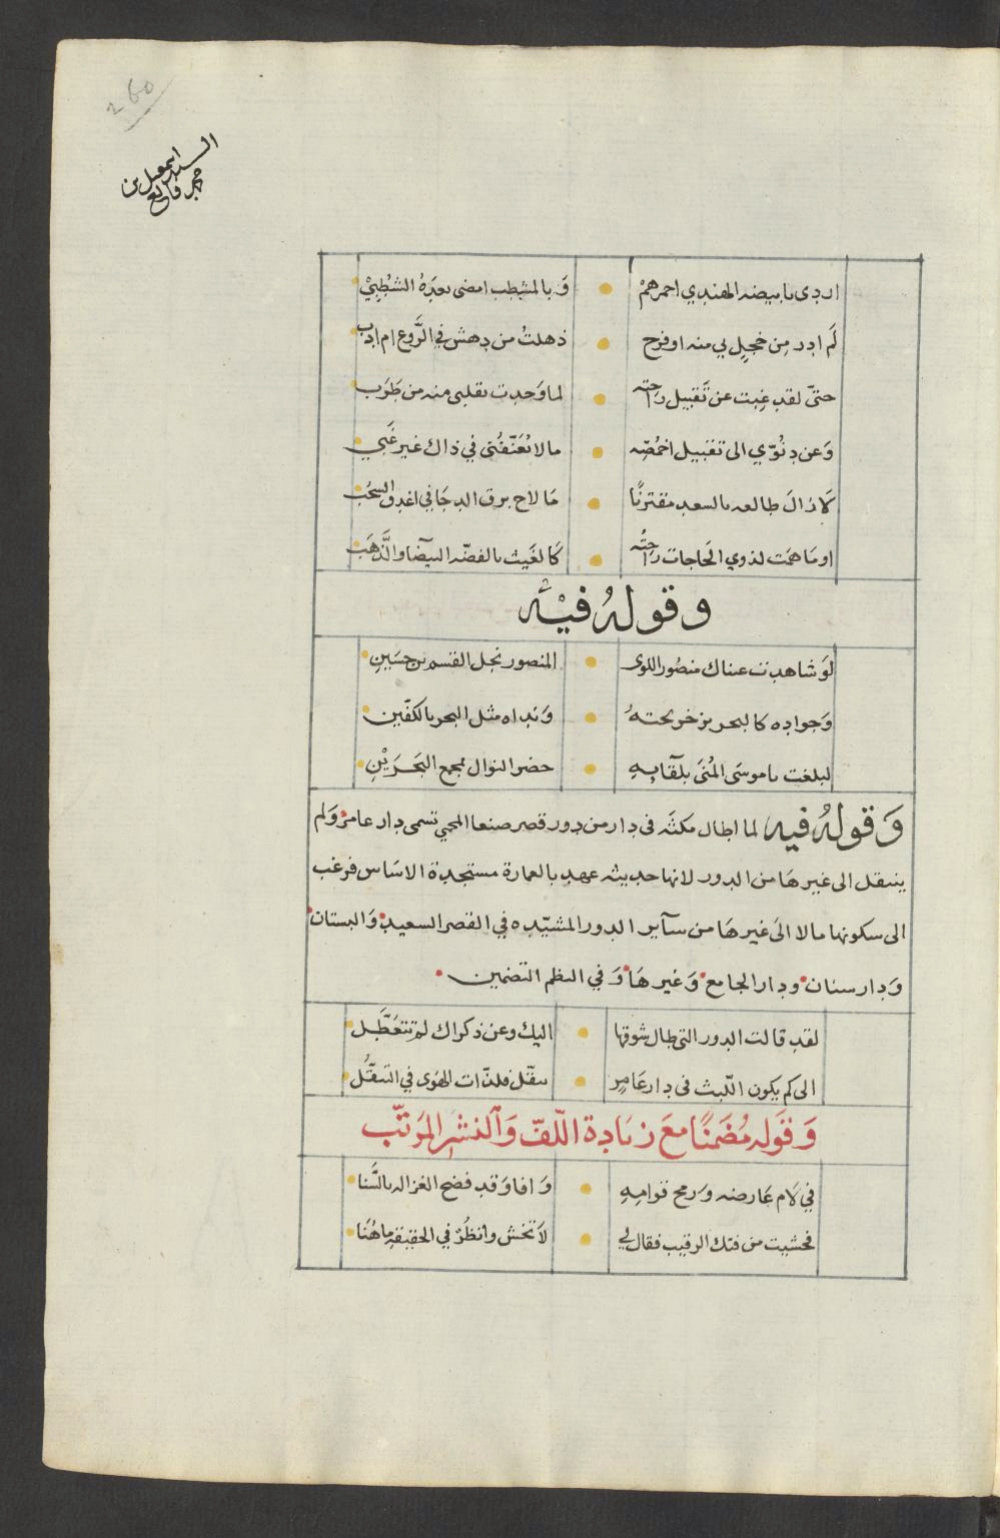 260
السيد اسمعيل بن
محمد فايع
اردى بابيضه الهندي احمرهم وَبالمشطب امضى بعده الشطبي
لَم ادر مِن خجلٍ بي منه او فرح ذهلتُ من دهش في الرَّوع ام ادب
حتىّ لقد غِبت عن تَقبيل راحته لما وَجدت بقلبى منه من طَرَب
وَعن دنُوّي الى تقبيل اخمُصه مالا تُعَنّفُنى في ذاك غير غَبي
لَا زالَ طالعه بالسعد مقترنًا مَا لاح برق الدجَا في اغدق السحُب
او مَا همَت لذوي الحَاجات راحتُه كَالغَيث بالفضّه البيَضا والذَّهَب
وقولهُ فيْه
لوَ شاهدت عيناك منصُور اللوى المنصور نجل القسم بن حسَينِ
وَجواده كالبحر يزخر تحتهُ وَنداه مثل البحر بالكفّين
لبلغت ياموسَى المُنَى بلقآيهِ حضر النوال مجمع البَحَرَيْنِ
وَقولهُ فيه لما اطال مكثَه فى دار من دور قصر صنعا المحمي تسمى دار عامر وَلم
ينتقل الى غيرهَا من الدور لانها حديثه عهد بالعمارة مستجدة الاسَاس فرغب
الى سكونها مالا الَى غيرهَا من سآير الدور المشيّده في القصر السعيد وَالبستان
وَدار سنان ودار الجامع وَغيرهَا وَفي النظم التضمين
لقد قالت الدور التى طال شوقها اليك وعن ذكراك لم تتعَطَّل
الى كم يكون اللّبث فى دار عَامرٍ تنقّل فلذّات الهَوى في التنقّل
وَقَوله مُضَمّنًا مَعَ زيَادة اللّفّ وَالنشر المرَتّب
في لَام عَارضه وَرمح قوامِهِ وَافا وَقد فضح الغزاله بالسَّنا
فخشيت من فتك الرقيب فقال لي لَا تخش وانظُرْ في الحقيقه ما هُنَا